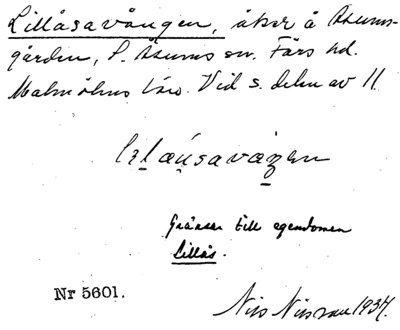 Lillåsavången, åker å Åsums-
gården, S. Åsums sn. Färs hd.
Malmöhus län. Vid s. delen av 11
Gränsar till egendomen
Lillås.
Nr 5601.
Nils Nilsson 1934.